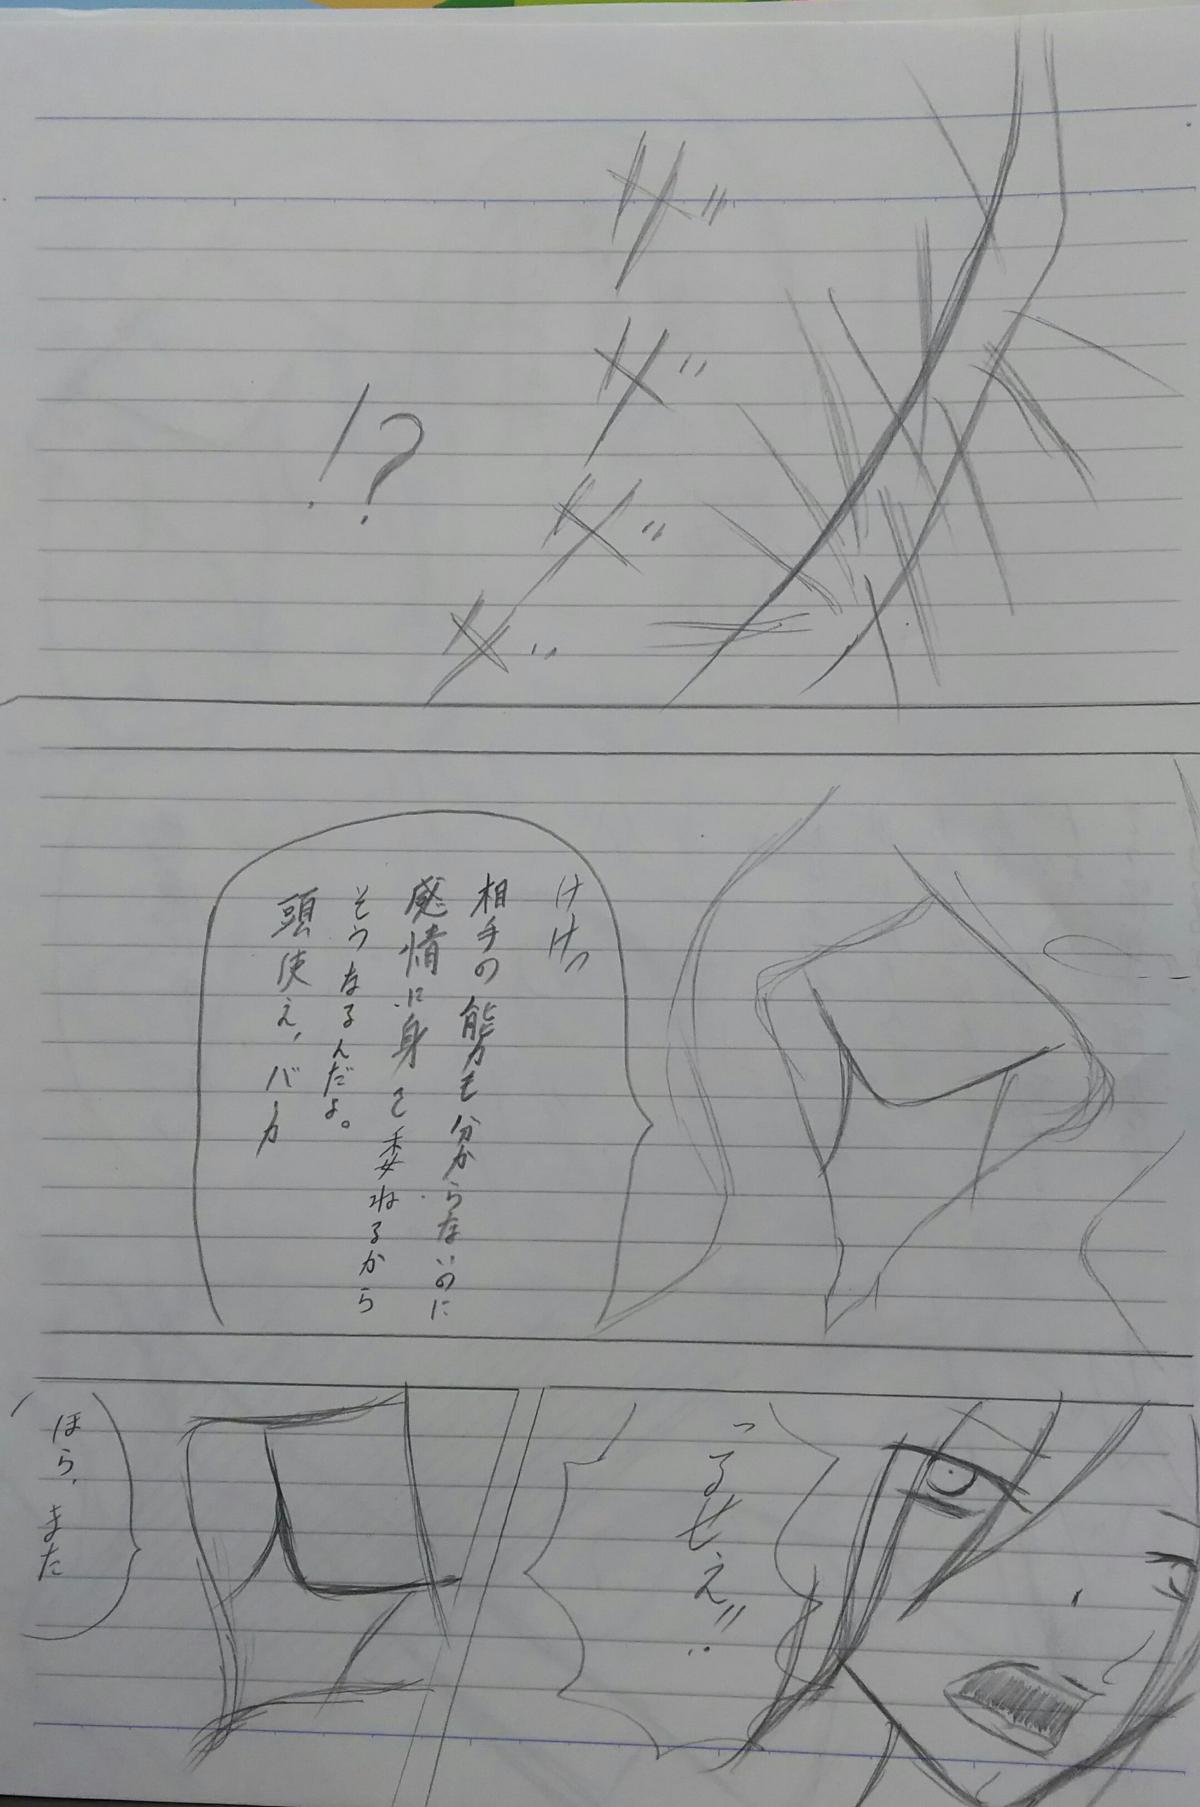 ガ
ガ
ガ
ガ
!?
けけっ
相手の能力も分からないのに
感情に身を委ねるから
そうなるんだよ。
頭使え、バカ
っるせえ!!
ほら、また